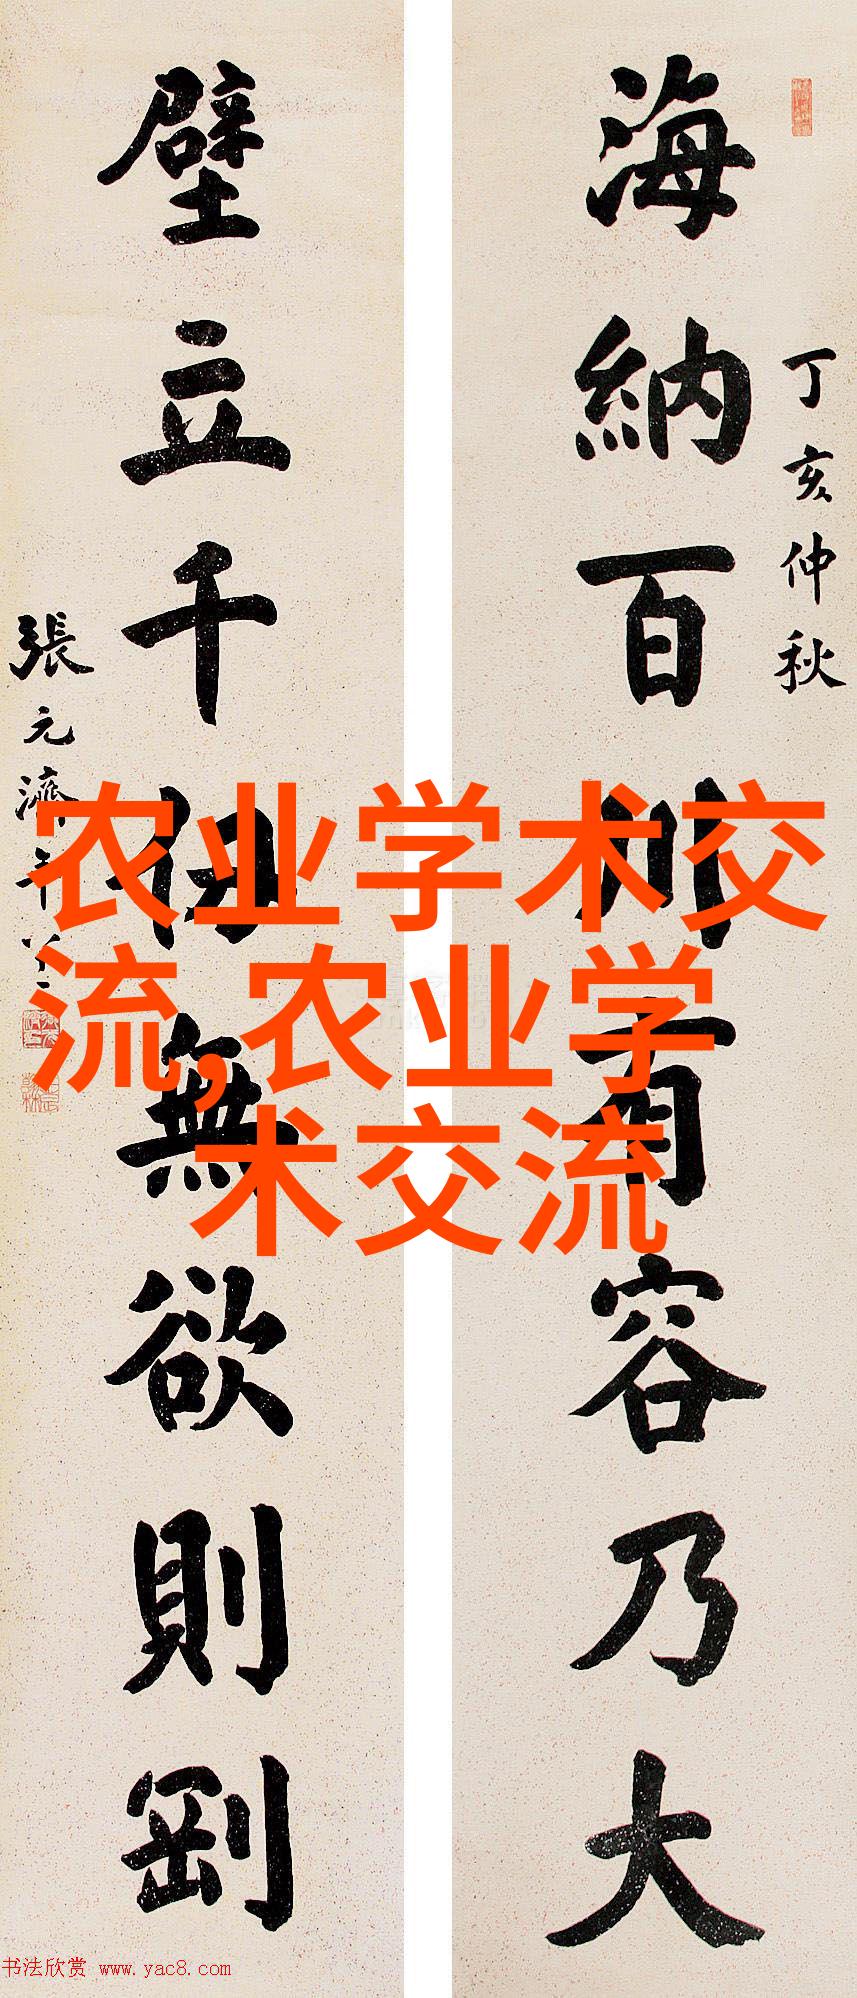 海納百川有容乃大
丁亥仲秋
壁立千仞無欲則剛
張元濟
农业学术交
流,农业学
术交流
书法欣赏 www.yac8.com